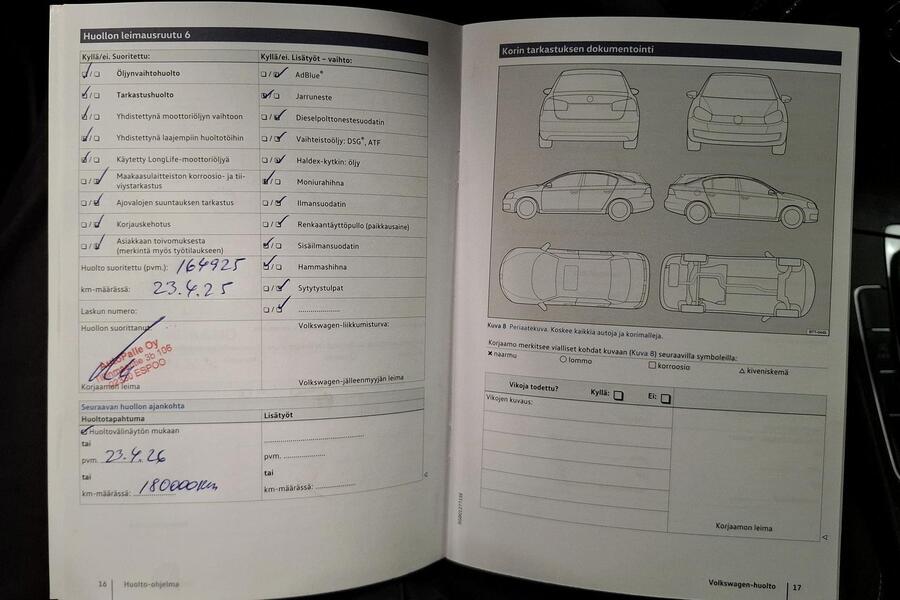 Huollon leimausruutu 6
Kyllä/ei. Suoritettu:
☑/☐ Öljynvaihtohuolto
☑/☐ Tarkastushuolto
☑/☐ Yhdistettynä moottoriöljyn vaihtoon
☑/☐ Yhdistettynä laajempiin huoltotöihin
☑/☐ Käytetty LongLife-moottoriöljyä
☐/☑ Maakaasulaitteiston korroosio- ja tii-
viystarkastus
☐/☑ Ajovalojen suuntauksen tarkastus
☐/☑ Korjauskehotus
☐/☑ Asiakkaan toivomuksesta
(merkintä myös työtilaukseen)
Huolto suoritettu (pvm.): 164925
km-määrässä: 23.4.25
Laskun numero:
Huollon suorittanut:
AutoPalle Oy
3b 106
ESPOO
Korjaamon leima
Kyllä/ei. Lisätyöt – vaihto:
☐/☑ AdBlue®
☑/☐ Jarruneste
☐/☑ Dieselpolttonestesuodatin
☐/☑ Vaihteistoöljy: DSG®, ATF
☐/☑ Haldex-kytkin: öljy
☑/☐ Moniurahihna
☐/☑ Ilmansuodatin
☐/☑ Renkaantäyttöpullo (paikkausaine)
☑/☐ Sisäilmansuodatin
☑/☐ Hammashihna
☐/☑ Sytytystulpat
☐/☑ ....................
Volkswagen-liikkumisturva:
Volkswagen-jälleenmyyjän leima
Seuraavan huollon ajankohta
Huoltotapahtuma
☑ Huoltovälinäytön mukaan
tai
pvm. 23.4.26
tai
km-määrässä: 180000km
Lisätyöt
....................
pvm. ....................
tai
km-määrässä: ....................
16 Huolto-ohjelma
Korin tarkastuksen dokumentointi
Kuva 8 Periaatekuva. Koskee kaikkia autoja ja korimalleja.
Korjaamo merkitsee vialliset kohdat kuvaan (Kuva 8) seuraavilla symboleilla:
✕ naarmu ○ lommo □ korroosio △ kiveniskemä
Vikoja todettu? Kyllä: ☐ Ei: ☐
Vikojen kuvaus:
Korjaamon leima
Volkswagen-huolto 17